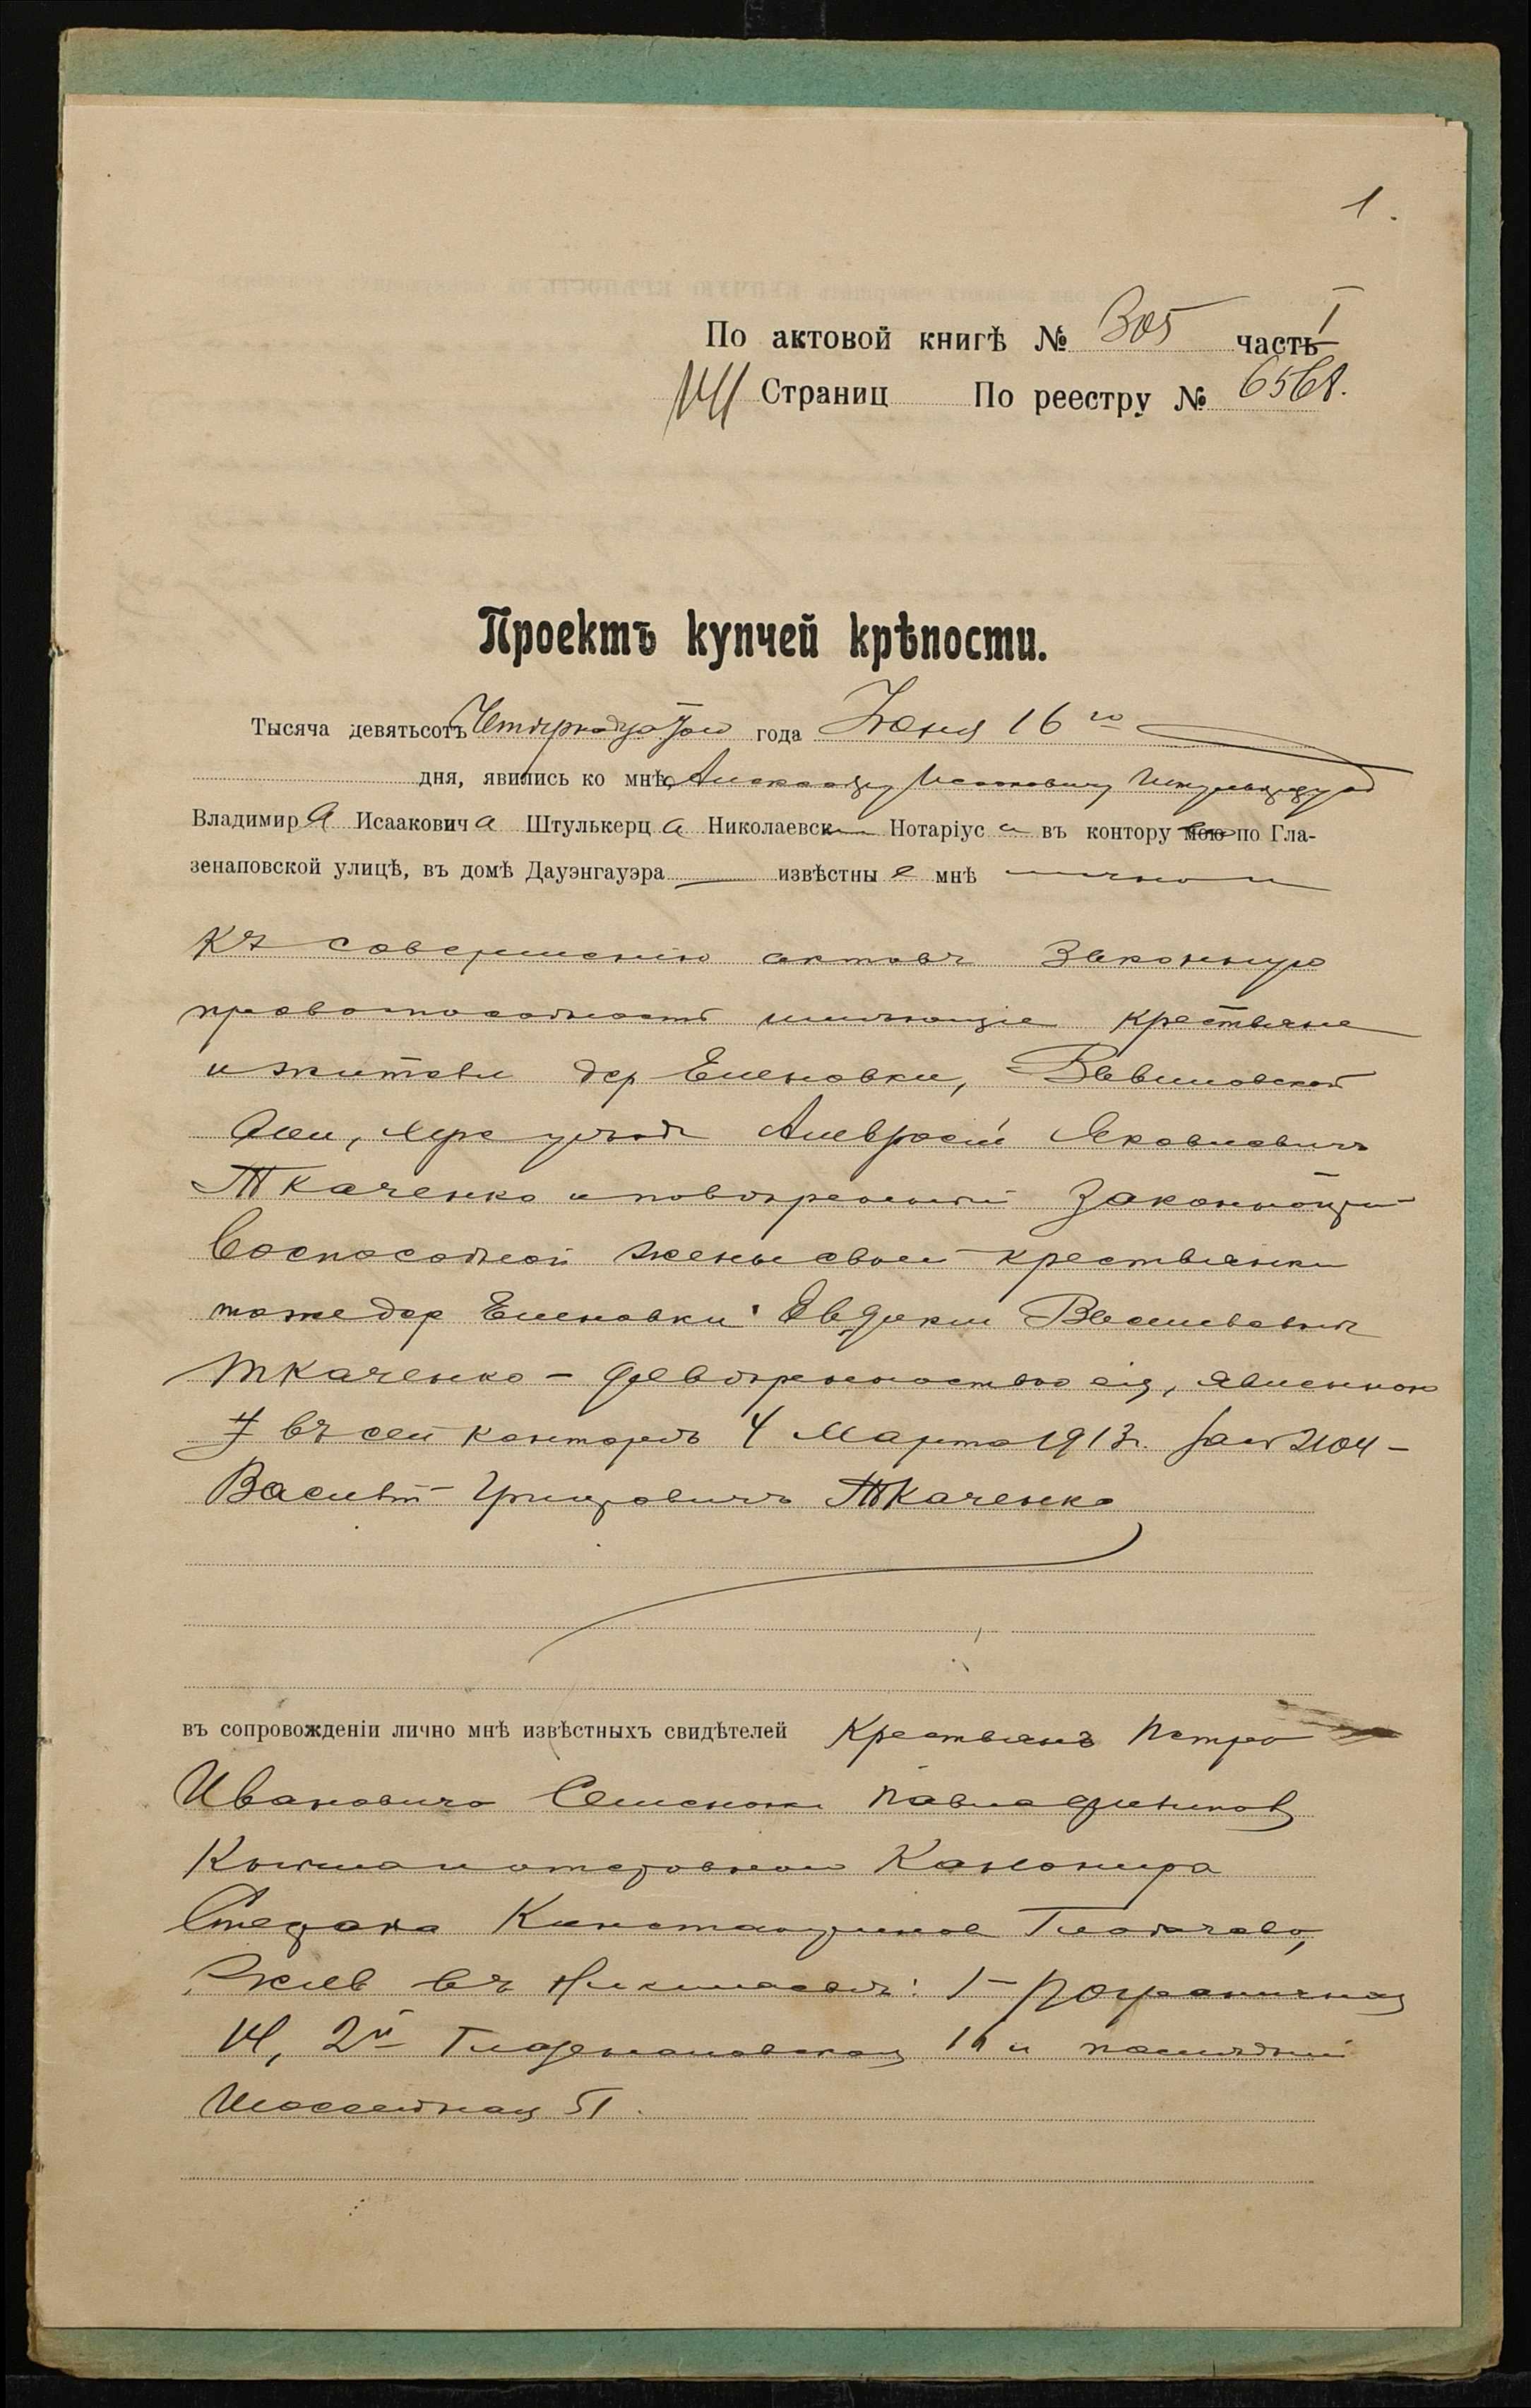 1.
По актовой книгѣ № 305 часть I
14 Страниц По реестру № 6568.
Проектъ купчей крѣпости.
Тысяча девятьсотъ Четырнадцатаго года Июня 16го
дня, явились ко мнѣ, Александру Исааковичу Штулькерцу
Владимира Исааковича Штулькерца Николаевск Нотаріуса въ контору мою по Гла-
зенаповской улицѣ, въ домѣ Дауэнгауэра извѣстные мнѣ лично и
къ совершенію актовъ законную
правоспособность имѣющіе крестьяне
и жители дер Еленовки,
уѣзда Амвросій Яковлевичъ
Ткаченко и повѣренный законноправо
способной жены своей крестьянки
тоже дер Еленовки Евдокіи Васильевны
Ткаченко - по довѣренности ея, явленной
въ сей конторѣ 4 Марта 1913 г. за № 2104 -
Василій Григорьевичъ Ткаченко
въ сопровожденіи лично мнѣ извѣстныхъ свидѣтелей Крестьянъ Петра
Ивановича Семененки Павла
и отставного Канонира
Стефана Константинова
жив. въ Николаевѣ: 1й Пограничная
14, 2й Глазенаповская 11 и послѣдній
Шоссейная 51.